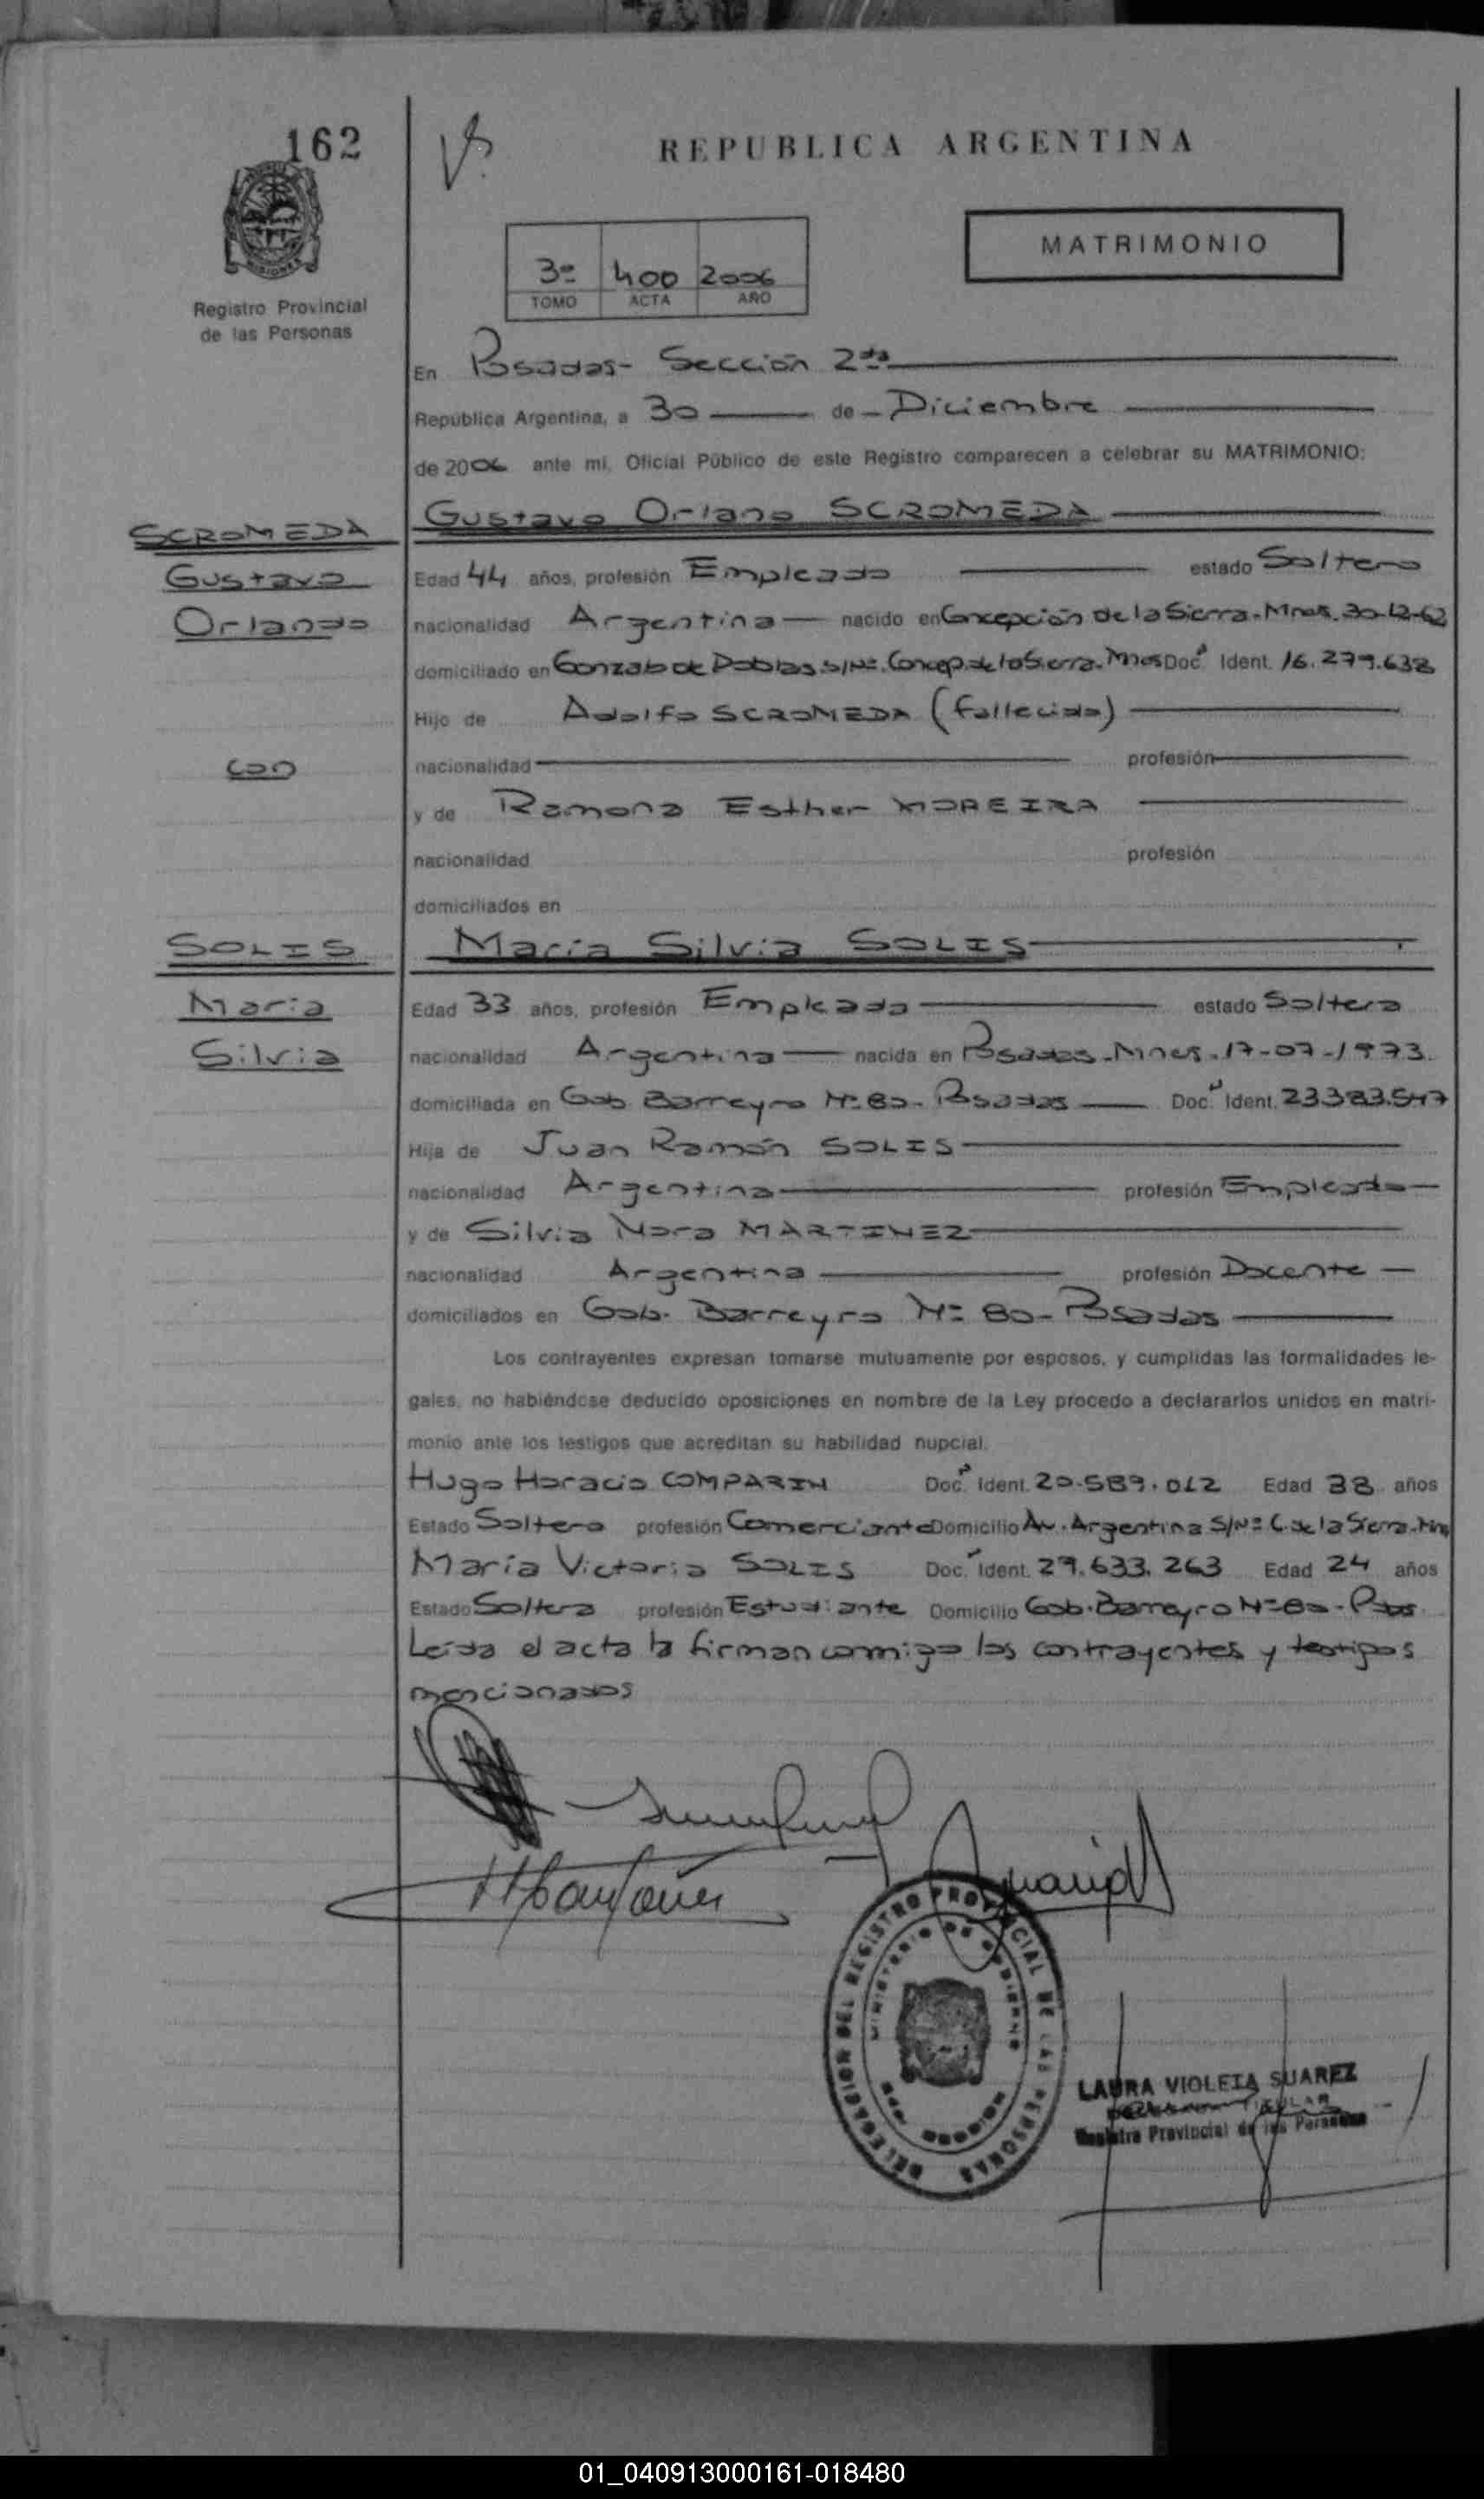 162
REPUBLICA ARGENTINA
MATRIMONIO
3º 400 2006
TOMO ACTA AÑO
Registro Provincial
de las Personas
En Posadas- Sección 2da
República Argentina, a 30 de Diciembre
de 2006 ante mí, Oficial Público de este Registro comparecen a celebrar su MATRIMONIO:
SCROMEDA
Gustavo
Orlando
con
SOLIS
María
Silvia
Gustavo Orlando SCROMEDA
Edad 44 años, profesión Empleado estado Soltero
nacionalidad Argentina nacido en Concepción de la Sierra-Mnes. 30-12-62
domiciliado en Gonzalo de Doblas s/Nº. Concep. de la Sierra-Mnes Doc. Ident. 16.279.638
Hijo de Adolfo SCROMEDA (fallecido)
nacionalidad profesión
y de Ramona Esther MOREIRA
nacionalidad profesión
domiciliados en
María Silvia SOLIS
Edad 33 años, profesión Empleada estado Soltera
nacionalidad Argentina nacida en Posadas-Mnes. 17-07-1973.
domiciliada en Gob. Barreyro Nº 80- Posadas Doc. Ident. 23.383.547
Hija de Juan Ramón SOLIS
nacionalidad Argentina profesión Empleado
y de Silvia Nora MARTINEZ
nacionalidad Argentina profesión Docente
domiciliados en Gob. Barreyro Nº 80- Posadas
Los contrayentes expresan tomarse mutuamente por esposos, y cumplidas las formalidades le-
gales, no habiéndose deducido oposiciones en nombre de la Ley procedo a declararlos unidos en matri-
monio ante los testigos que acreditan su habilidad nupcial.
Hugo Horacio COMPARIN Doc. Ident. 20.589.012 Edad 38 años
Estado Soltero profesión Comerciante Domicilio Av. Argentina S/Nº C. de la Sierra-Mns
María Victoria SOLIS Doc. Ident. 29.633.263 Edad 24 años
Estado Soltera profesión Estudiante Domicilio Gob. Barreyro Nº 80- Pdas.
Leída el acta la firman conmigo los contrayentes y testigos
mencionados
DELEGACION DEL REGISTRO PROVINCIAL DE LAS PERSONAS
MINISTERIO DE GOBIERNO
LAURA VIOLETA SUAREZ
TITULAR
Registro Provincial de las Personas
01_040913000161-018480